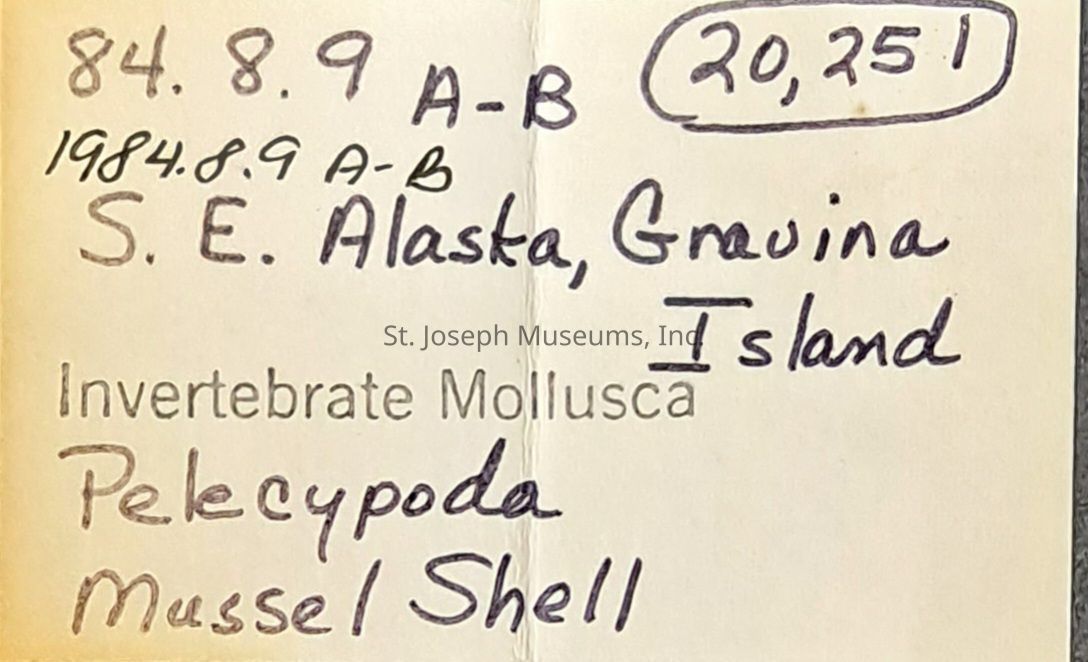 84. 8. 9 A-B 20,251
1984.8.9 A-B
S. E. Alaska, Gravina
Island
St. Joseph Museums, Inc.
Invertebrate Mollusca
Pelecypoda
Mussel Shell